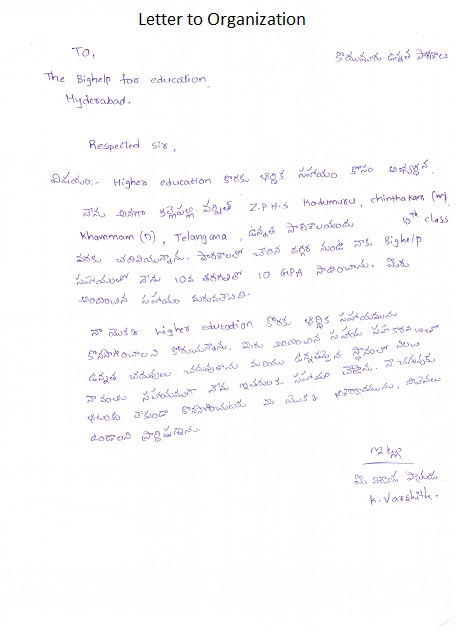 Letter to Organization
To,
కొదుమూరు ఉన్నత పాఠశాల
The Bighelp for education
Hyderabad.
Respected sir,
విషయం:- Higher education కొరకు ఆర్థిక సహాయం కోసం అభ్యర్థన.
నేను అనగా కల్లెపల్లి వర్షిత్ Z.P.H.S Kodumuru, chinthakani (M),
Khammam (D), Telangana, ఉన్నత పాఠశాలయందు 10th class
వరకు చదివియున్నాను. పాఠశాలలో చేరిన దగ్గర నుండి నాకు Bighelp
సహాయంతో నేను 10వ తరగతిలో 10 GPA సాధించాను. మీరు
అందించిన సహాయం మరువలేనిది.
నా యొక్క higher education కొరకు ఆర్థిక సహాయమును
కొనసాగించాలని కోరుచున్నాను. మీరు అందించిన సహాయ సహకారాలతో
ఉన్నత చదువులు చదువుతాను మరియు ఉన్నతమైన స్థానంలో నిలిచి
నా వంతు సహాయముగా నేను ఇతరులకు సహాయం చేస్తాను. నా చదువుకు
ఆటంకం లేకుండా కొనసాగించుటకు మీ యొక్క ఆశీర్వాదమును, దీవెనలు
ఉండాలని ప్రార్థిస్తున్నాను.
ఇట్లు
మీ విశ్వాస పాత్రుడు
K. Varshith.